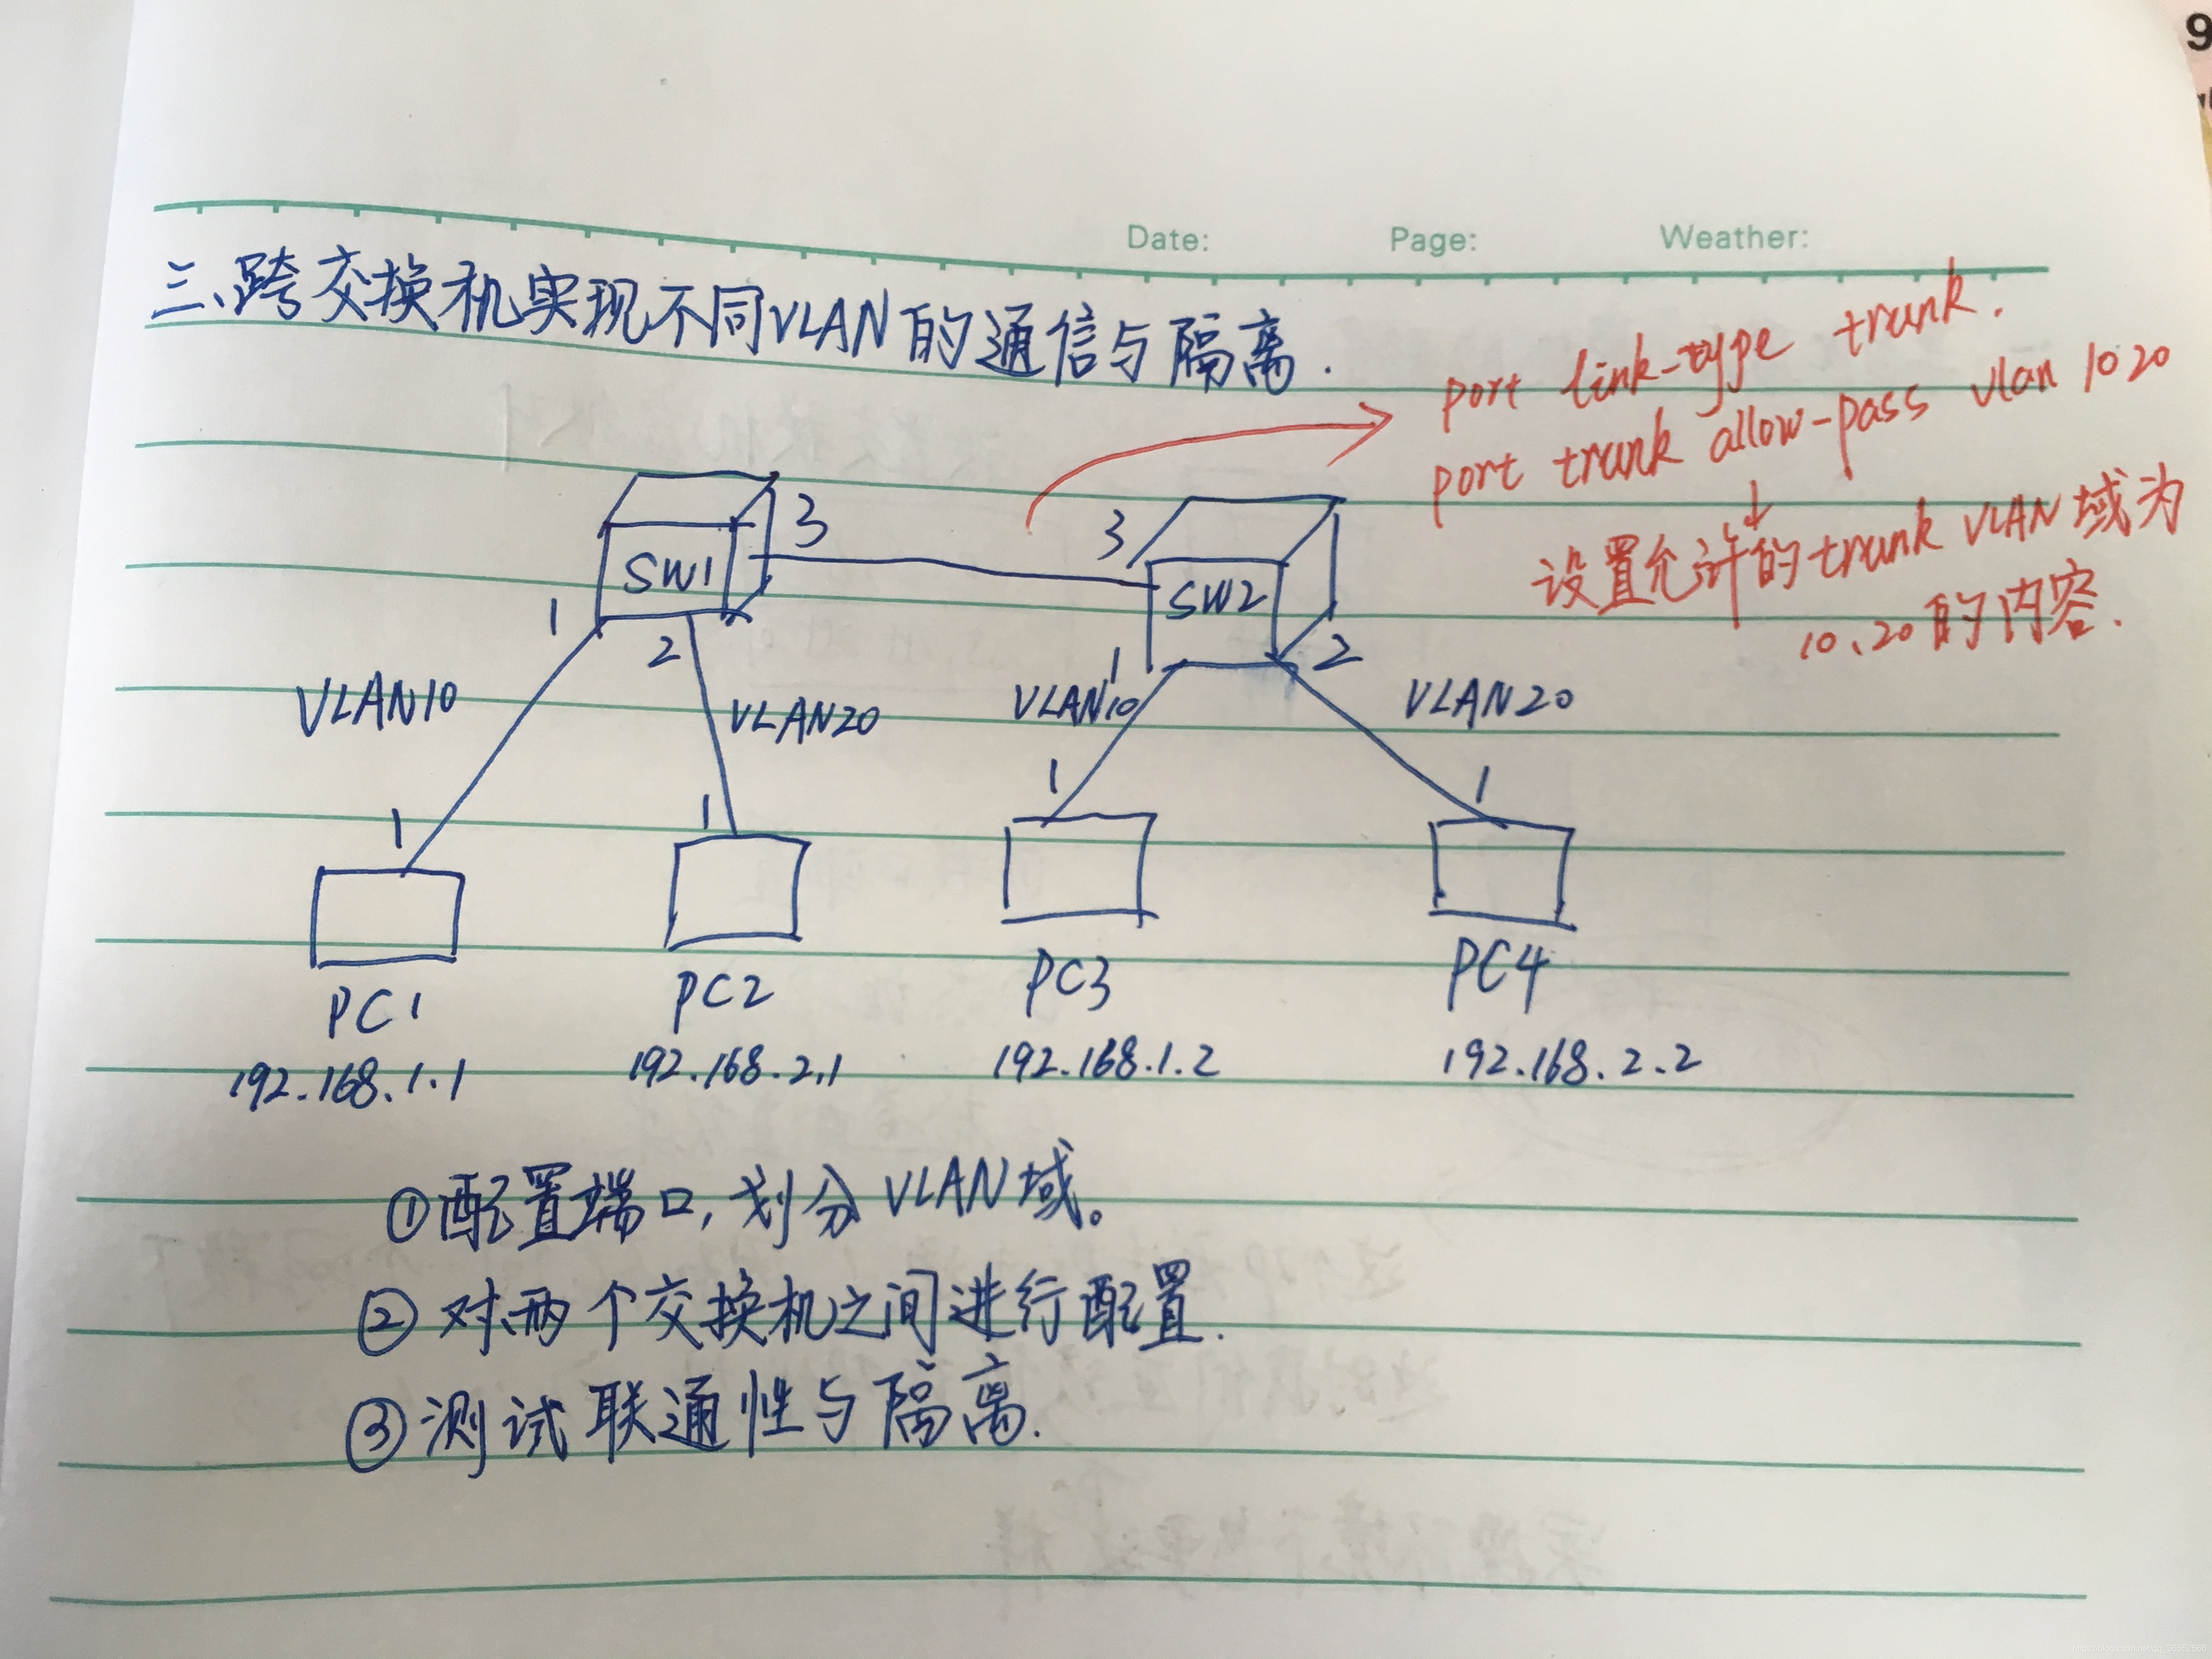 Date: Page: Weather:
三、跨交换机实现不同VLAN的通信与隔离.
port link-type trunk.
port trunk allow-pass vlan 10 20
设置允许的trunk VLAN域为
10、20的内容.
SW1 3
3 SW2
1 2
1 2
VLAN10 VLAN20 VLAN10 VLAN20
1 1 1 1
PC1 PC2 PC3 PC4
192.168.1.1 192.168.2.1 192.168.1.2 192.168.2.2
①配置端口,划分VLAN域。
②对两个交换机之间进行配置.
③测试联通性与隔离.
9